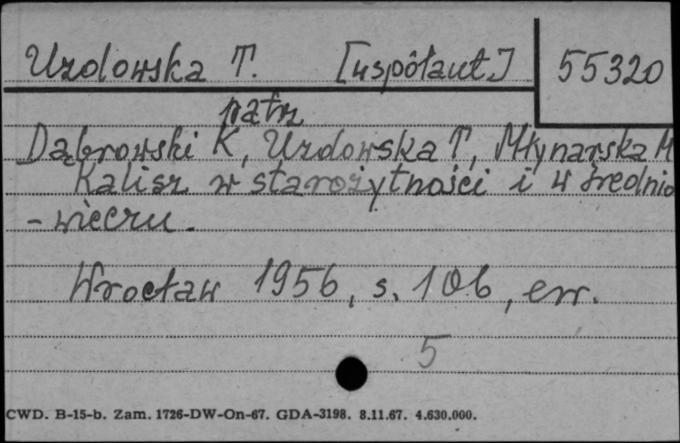 Uzdowska T. [współaut.] 55320
patrz
Dąbrowski K, Uzdowska T, Młynarska M
Kalisz w starożytności i w średnio
- wieczu.
Wrocław 1956, s. 106, err.
5
CWD. B-15-b. Zam. 1726-DW-On-67. GDA-3198. 8.11.67. 4.630.000.